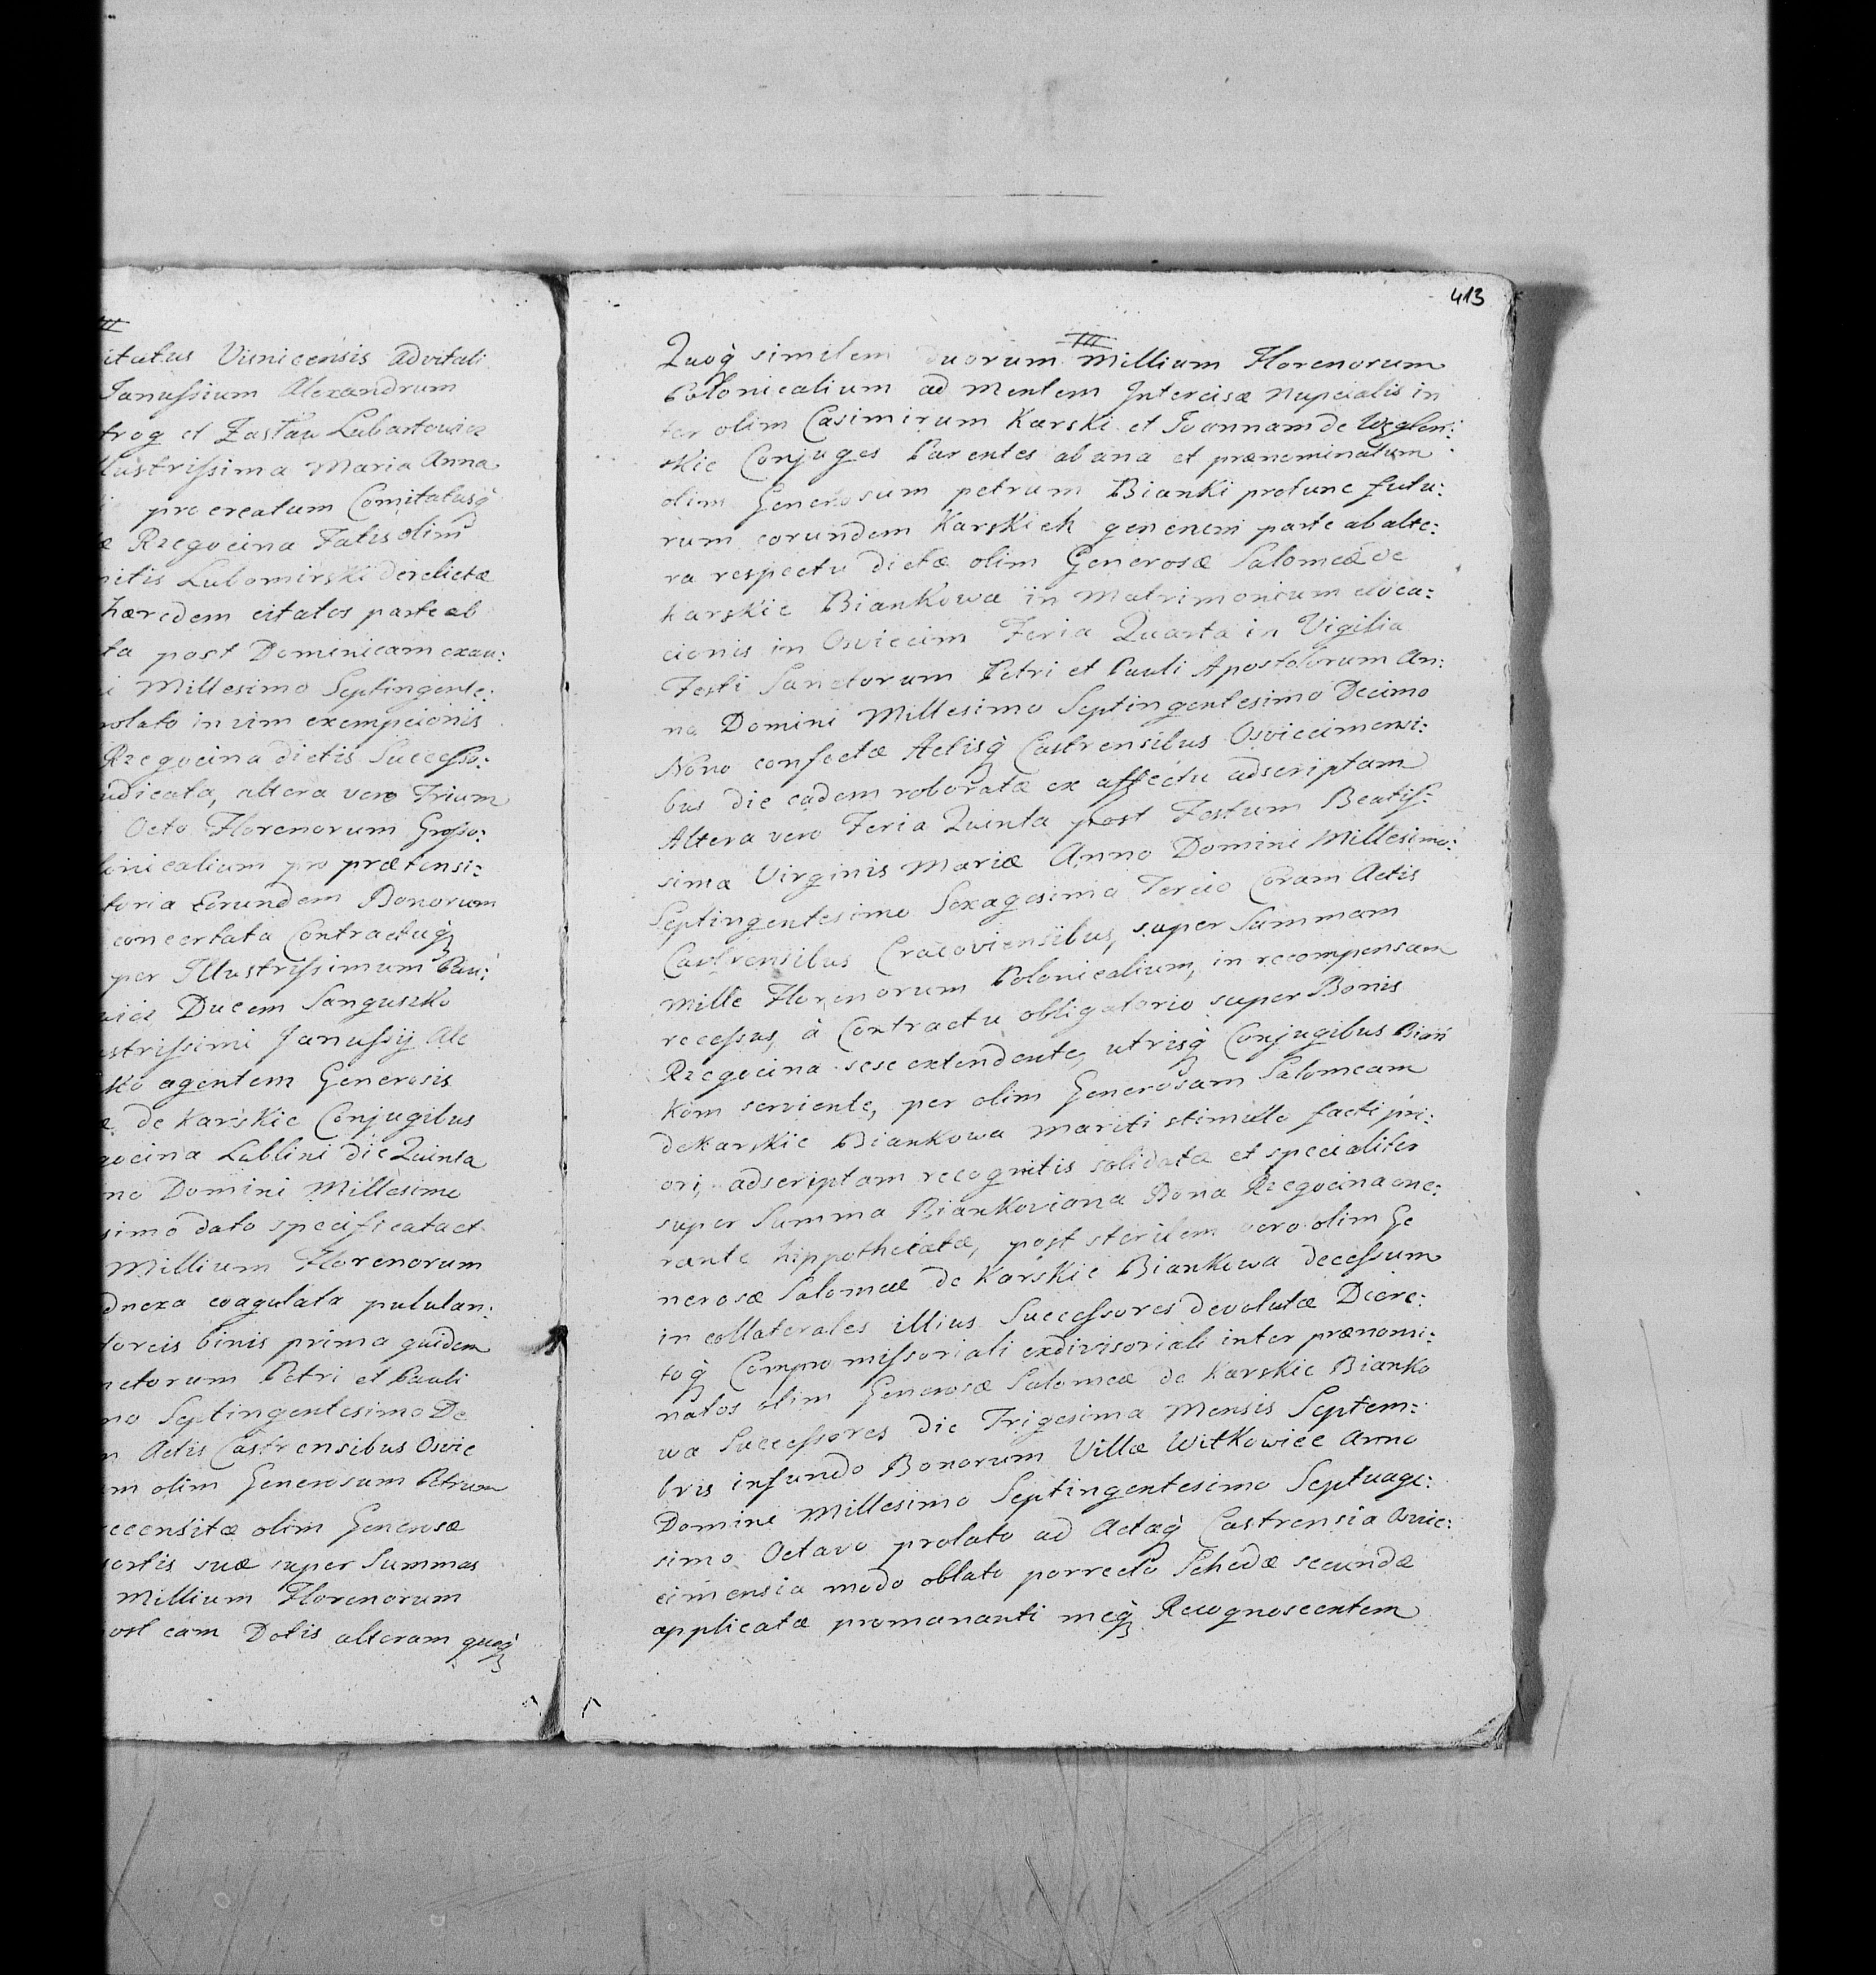 itatus Visnicensis advitali
Janussium Alexandrum
trog et Zasław Lubartowicz
llustrissima Maria Anna
procreatum Comitatusq̀
Rzegocina Fatis olim
nitis Lubomirski derelictæ
hæredem citatos parte ab
ta post Dominicam exau:
i Millesimo Septingente:
rolato in vim exempcionis
Rzegocina dictis Successo:
udicata, altera vero Trium
Octo Florenorum Grosso:
lonicalium pro prætensi:
toria Eorundem Bonorum
concertata Contractuq̀
per Illustrissimum Pau:
wicz Ducem Sanguszko
ustrissimi Janussij Ale
sko agentem Generosis
æ de Karskie Conjugibus
gocina Lublini die Quinta
no Domini Millesimo
simo dato specificata et
Millium Florenorum
dnexa coagulata pululan:
torcis binis prima quidem
nctorum Petri et Pauli
mo Septingentesimo De
m Actis Castrensibus Oswie
um olim Generosum Petrum
recensitæ olim Generosæ
sortis suæ super Summas
Millium Florenorum
post eam Dotis alteram quoq̀
413
III
Quoq̀ similem duorum Millium Florenorum
Polonicalium ad Mentem Intercisæ Nupcialis in
ter olim Casimirum Karski et Joannam de Węglen:
skie Conjuges Parentes ab una et prænominatum
olim Generosum petrum Bianki protunc futu:
rum eorundem Karskich generem parte ab alte:
ra respectu dictæ olim Generosæ Salomeæ de
Karskie Biankowa in Matrimonium eloca:
cionis in Osviecim Feria Quarta in Vigilia
Festi Sanctorum Petri et Pauli Apostolorum An:
no Domini Millesimo Septingentesimo Decimo
Nono confectæ Actisq̀ Castrensibus Osviecimensi:
bus die eadem roboratæ ex affectu adscriptam
Altera vero Feria Quinta post Festum Beatis:
sima Virginis Mariæ Anno Domini Millesimo:
Septingentesimo Sexagesimo Tercio Coram Actis
Castrensibus Cracoviensibus, super Summam
Mille Florenorum Polonicalium, in recompensam
recessus, à Contractu obligatorio super Bonis
Rzegocina sese extendente, utrisq̀ Conjugibus Biań
kom serviente, per olim Generosam Salomeam
de Karskie Biankowa Mariti stimulo facti pri:
ori, adscriptam recognitis solidatæ et specialiter
super Summa Biankoviana Bona Rzegocina one:
rante hippothecatæ, post sterilem vero olim Ge
nerosæ Salomeæ de Karskie Biankowa decessum
in collaterales illius Successores devolutæ Decre:
toq̀ Compromissoriali exdivisoriali inter prænomi:
natos olim Generosæ Salomeæ de Karskie Bianko
wa Successores die Trigesima Mensis Septem:
bris in fundo Bonorum Villæ Witkowice Anno
Domini Millesimo Septingentesimo Septuage:
simo Octavo prolato ad Actaq̀ Castrensia Oswie:
cimensia modo oblato porrecto Schedæ secundæ
applicatæ promananti meq̀ Recognoscentem